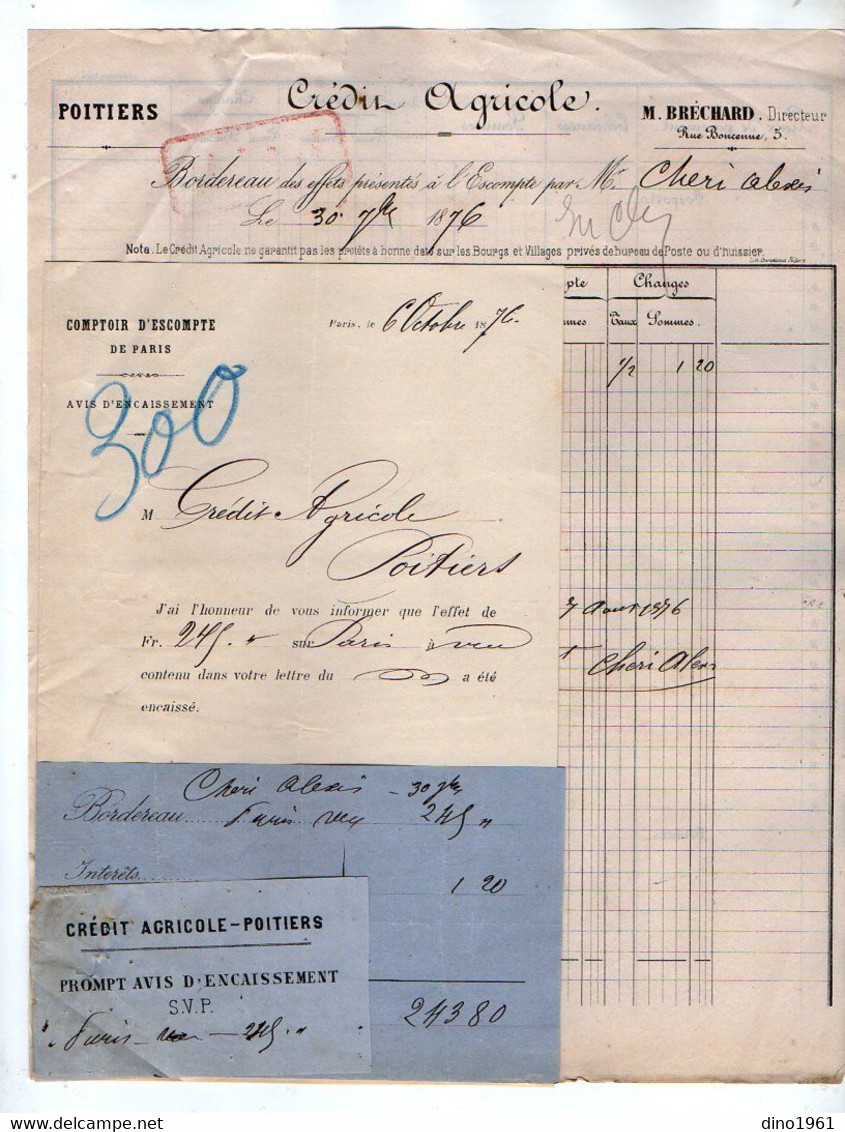 POITIERS
Crédit Agricole.
M. BRÉCHARD. Directeur
Rue Boncenne, 5.
Bordereau des effets présentés à l'Escompte par Mr Cheri Alexis
Le 30 7bre 1876
Nota. Le Crédit Agricole ne garantit pas les protêts à bonne date sur les Bourgs et Villages privés de bureau de Poste ou d'huissier.
pte Changes
mes. Taux Sommes.
1/2 1 20
COMPTOIR D'ESCOMPTE
DE PARIS
AVIS D'ENCAISSEMENT
Paris, le 6 Octobre 1876.
300
M Crédit Agricole
Poitiers
J'ai l'honneur de vous informer que l'effet de
Fr. 245. " sur Paris à vue
contenu dans votre lettre du a été
encaissé.
7 Aout 1876
Cheri Alexis
Cheri Alexis - 30 7bre
Bordereau Paris vue 245 "
Interêts 1 20
243 80
CRÉDIT AGRICOLE-POITIERS
PROMPT AVIS D'ENCAISSEMENT
S.V.P.
" Paris - vue - 245. "
dino1961